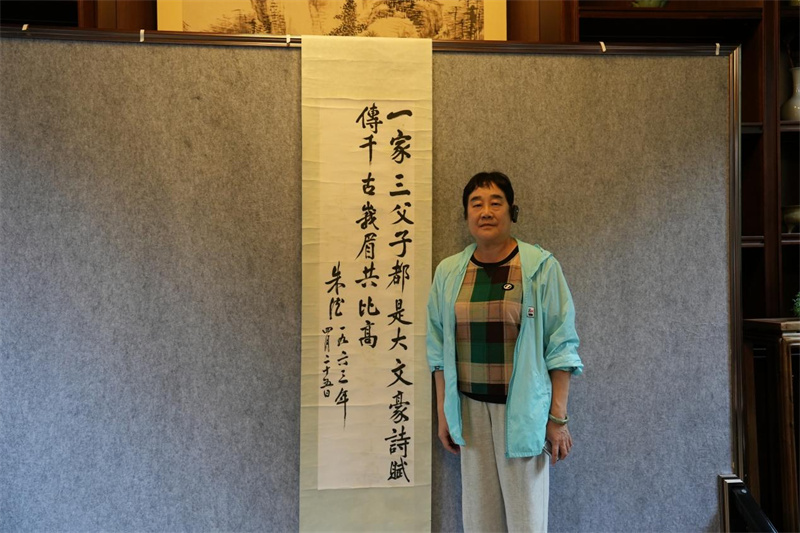 一家三父子都是大文豪詩賦
傳千古峩眉共比高
朱德
一九六三年
四月二十五日